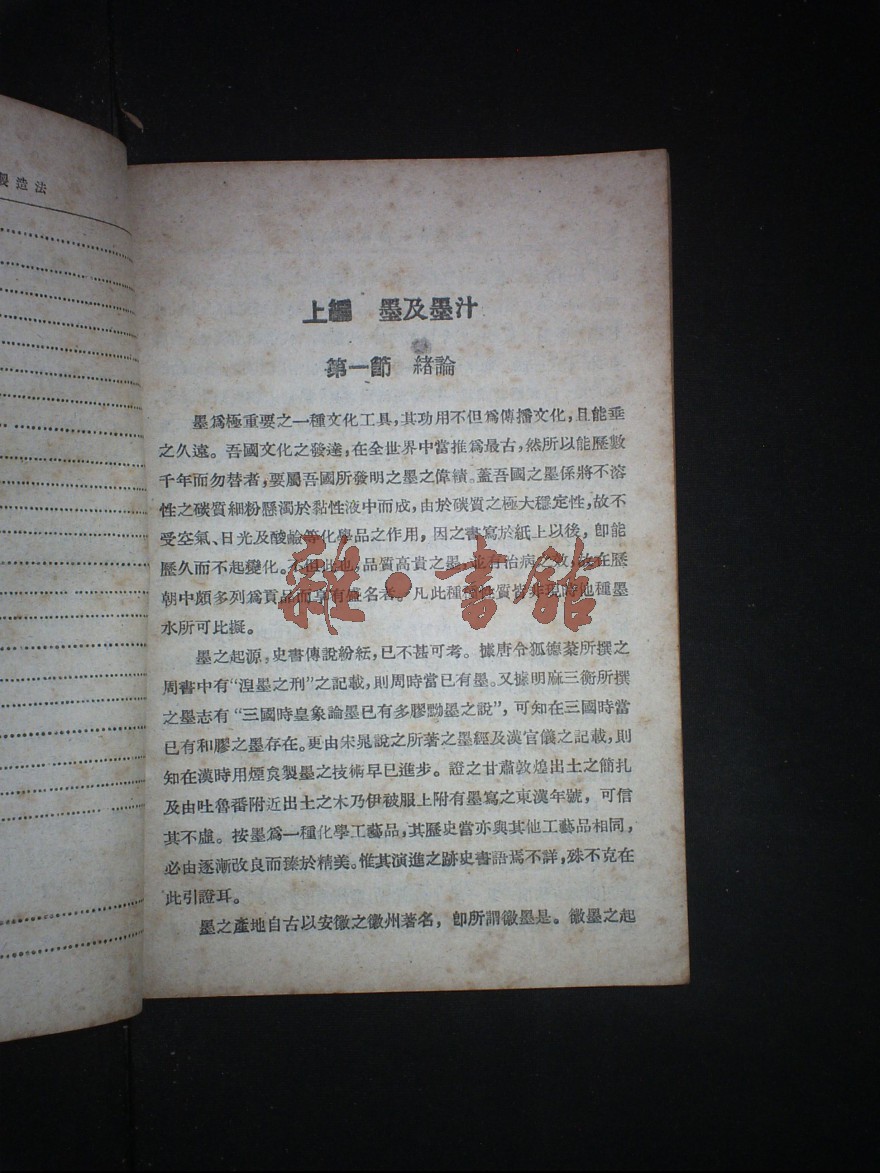 製造法
上編 墨及墨汁
第一節 緒論
墨爲極重要之一種文化工具,其功用不但爲傳播文化,且能垂
之久遠。吾國文化之發達,在全世界中當推爲最古,然所以能歷數
千年而勿替者,要屬吾國所發明之墨之偉績。蓋吾國之墨係將不溶
性之碳質細粉懸濁於黏性液中而成,由於碳質之極大穩定性,故不
受空氣、日光及酸鹼等化學品之作用,因之書寫於紙上以後,卽能
歷久而不起變化。不但此也,品質高貴之墨,並有治病之效,故在歷
朝中頗多列爲貢品而享有盛名者。凡此種種性質皆非現時他種墨
水所可比擬。
墨之起源,史書傳說紛紜,已不甚可考。據唐令狐德棻所撰之
周書中有“涅墨之刑”之記載,則周時當已有墨。又據明麻三衡所撰
之墨志有“三國時皇象論墨已有多膠黝墨之說”,可知在三國時當
已有和膠之墨存在。更由宋晁說之所著之墨經及漢官儀之記載,則
知在漢時用煙炱製墨之技術早已進步。證之甘肅敦煌出土之簡扎
及由吐魯番附近出土之木乃伊被服上附有墨寫之東漢年號,可信
其不虛。按墨爲一種化學工藝品,其歷史當亦與其他工藝品相同,
必由逐漸改良而臻於精美。惟其演進之跡史書語焉不詳,殊不克在
此引證耳。
墨之產地自古以安徽之徽州著名,卽所謂徽墨是。徽墨之起
雜·書館